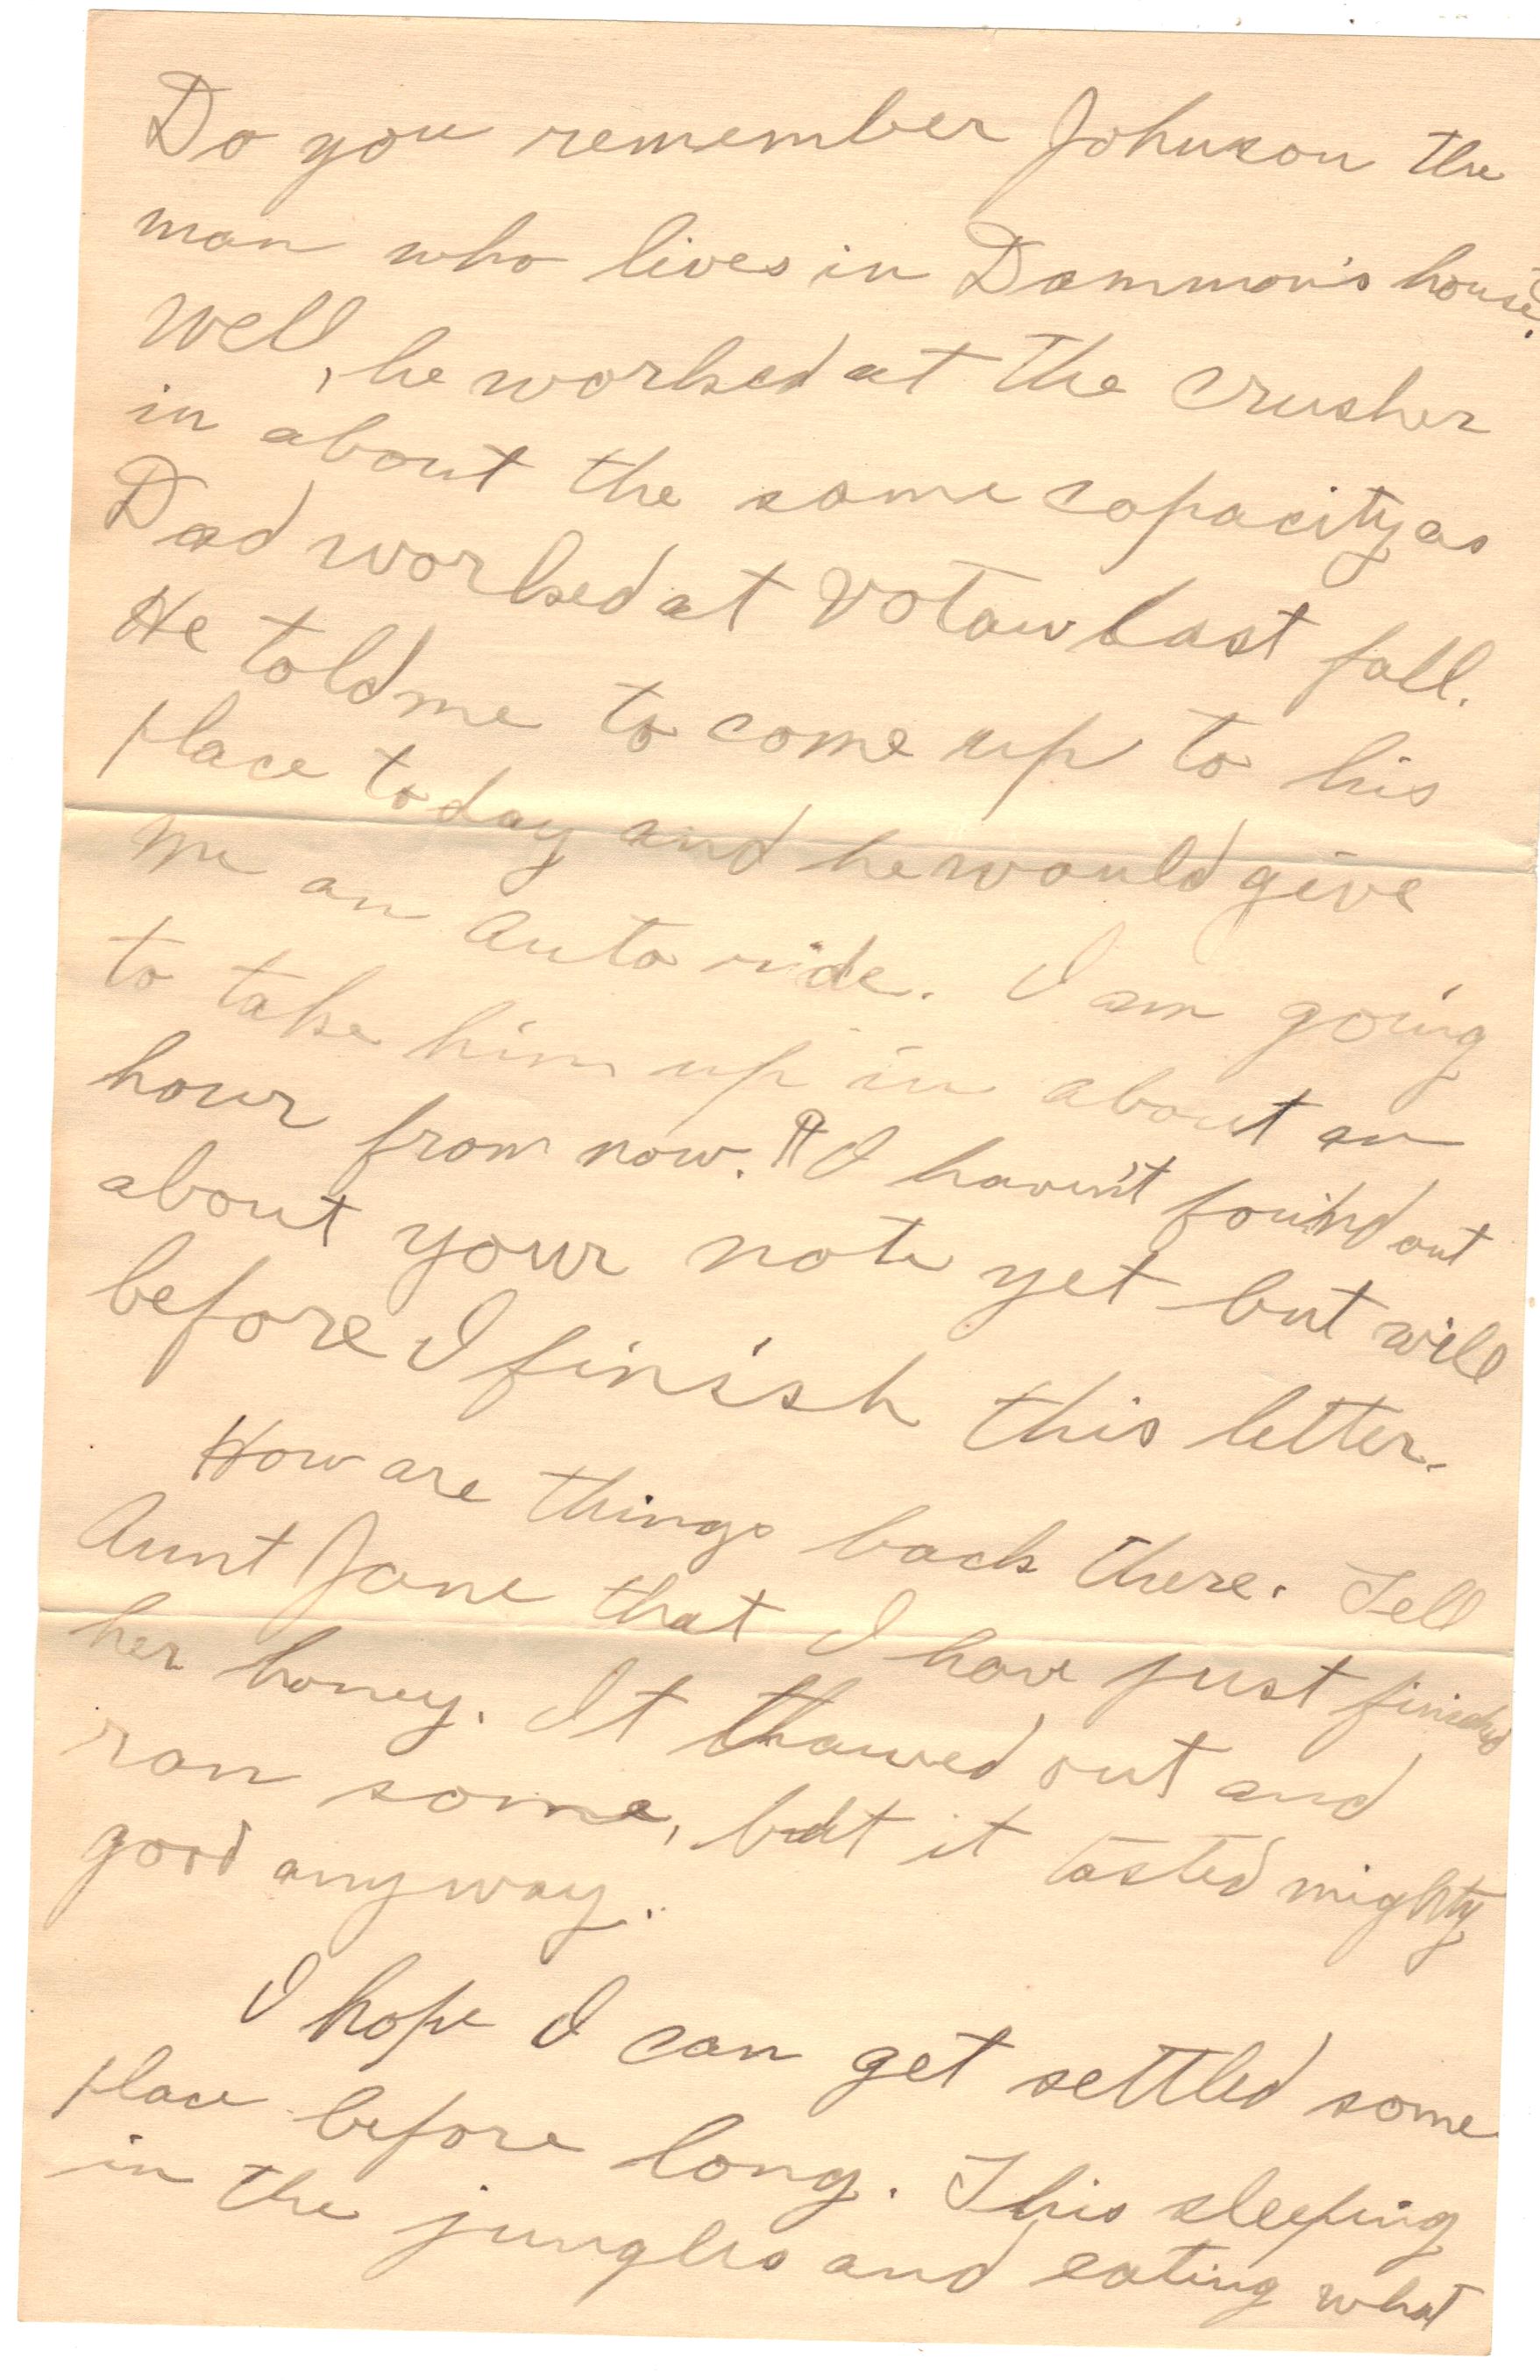 Do you remember Johnson the
man who lives in Dammon's house.
Well, he worked at the crusher
in about the same capacity as
Dad worked at Votaw last fall.
He told me to come up to his
place today and he would give
me an Auto ride. I am going
to take him up in about an
hour from now. ¶ I haven't found out
about your note yet but will
before I finish this letter.
How are things back there. Tell
Aunt Jane that I have just finished
her honey. It thawed out and
ran some, but it tasted mighty
good anyway.
I hope I can get settled some
place before long. This sleeping
in the jungles and eating what